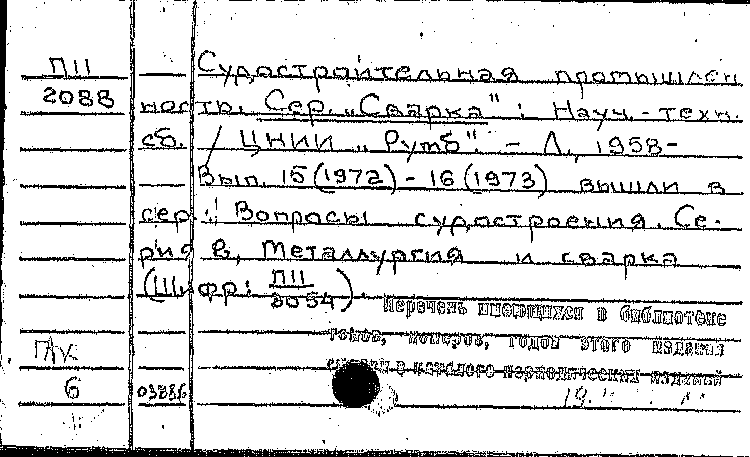 П11
2088
Судостроительная промышлен
ность. Сер. „Сварка": Науч.-техн.
сб. / ЦНИИ „Румб". - Л., 1958-
Вып. 15 (1972) - 16 (1973) вышли в
сер.: Вопросы судостроения. Се-
рия 8, Металлургия и сварка
(Шифр: П11
3054).
Перечень имеющихся в библиотеке
томов, номеров, годов этого издания
смотри в каталоге периодических изданий
ПАК
6